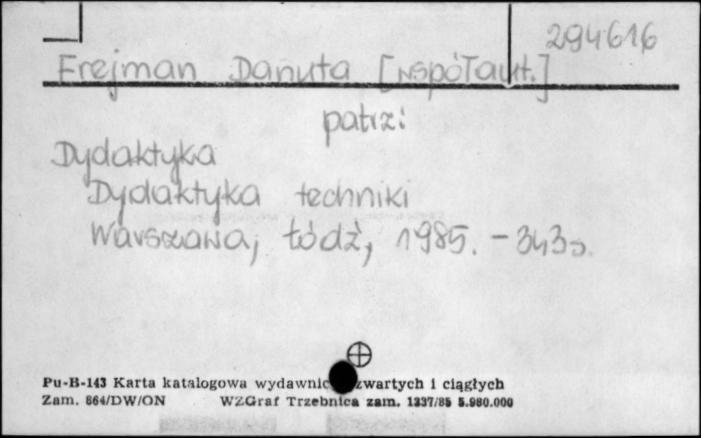 294616
Frejman Danuta [współaut.]
patrz:
Dydaktyka
Dydaktyka techniki
Warszawa, Łódź, 1985. - 343 s.
Pu-B-143 Karta katalogowa wydawnic zwartych i ciągłych
Zam. 664/DW/ON WZGraf Trzebnica zam. 1337/85 5.980.000